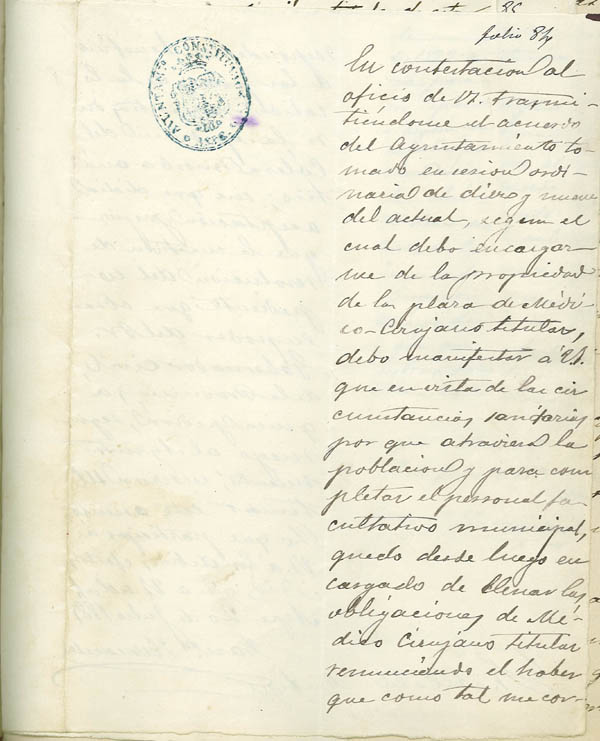 Julio 84
AYUNTAMIENTO CONSTITUCIONAL
En contestacion al
oficio de V. trasmi-
tiendome el acuerdo
del Ayuntamiento to-
mado en sesion ordi-
naria de diez y nueve
del actual, segun el
cual debo encargar
me de la propiedad
de la plaza de Médi
co-Cirujano titular,
debo manifestar á V.
que en vista de las cir
cunstancias sanitarias
por que atraviesa la
poblacion y para com
pletar el personal fa
cultativo municipal,
quedo desde luego en
cargado de llenar las
obligaciones de Mé-
dico Cirujano titular
renunciando el haber
que como tal me cor-